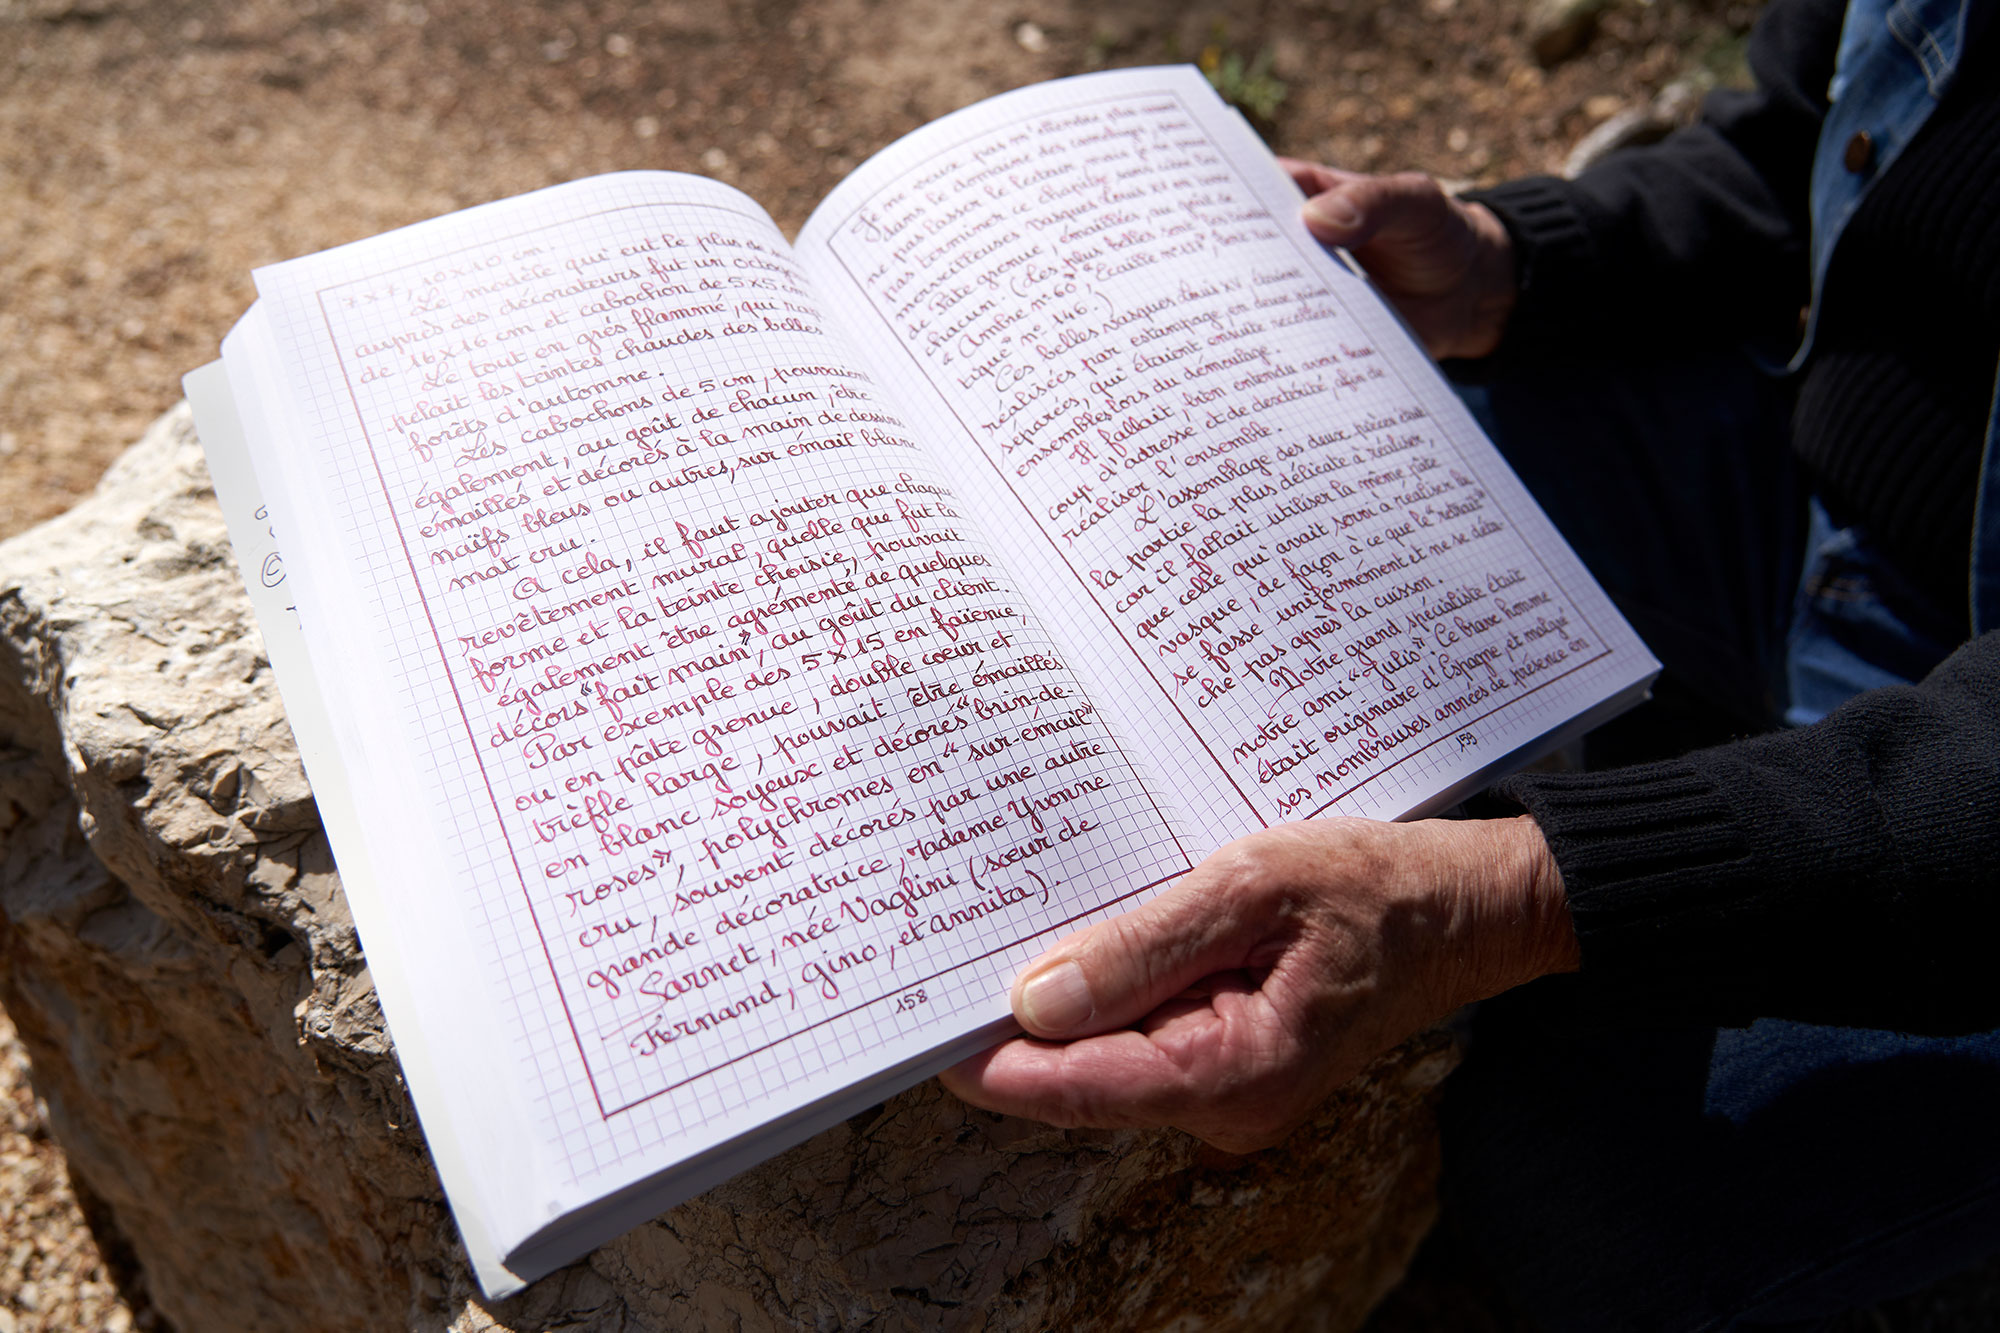 7x7, 10x10 cm.
Le modèle qui eut le plus de
auprès des décorateurs fut un octogo
de 16x16 cm et cabochon de 5x5 cm
Le tout en grès flammé, qui rap
pelait les teintes chaudes des belles
forêts d'automne.
Les cabochons de 5 cm, pouvaient
également, au goût de chacun, être
émaillés et décorés à la main de dessins
naïfs bleus ou autres, sur émail blanc
mat cru.
A cela, il faut ajouter que chaque
revêtement mural, quelle que fut la
forme et la teinte choisie, pouvait
également être agrémenté de quelques
décors "fait main", au goût du client.
Par exemple des 5x15 en faïence,
ou en pâte grenue, double cœur et
trèfle large, pouvait être émaillés
en blanc soyeux et décoré "brin-de-
roses", polychromes en "sur-émail"
cru, souvent décorés par une autre
grande décoratrice, Madame Yvonne
Sarnet, née Vaglini (sœur de
Fernand, Gino, et Annita).
158
Je ne veux pas m'étendre plus avant
dans le domaine des carrelages, pour
ne pas lasser le lecteur mais je ne peux
pas terminer ce chapitre sans citer les
merveilleuses vasques Louis XV en terre
de Pâte grenue, émaillées au goût de
chacun. (Les plus belles sont en teintes
"Ambre n° 60", "Écaille n° 137",
tique" n° 146.)
Ces belles vasques Louis XV, étaient
réalisées par estampage en deux pièces
séparées, qui étaient ensuite recollées
ensembles lors du démoulage.
Il fallait, bien entendu avoir beau
coup d'adresse et de dextérité, afin de
réaliser l'ensemble.
L'assemblage des deux pièces était
la partie la plus délicate à réaliser,
car il fallait utiliser la même pâte
que celle qui avait servi à réaliser la
vasque, de façon à ce que le "retrait"
se fasse uniformément et ne se déta-
che pas après la cuisson.
Notre grand spécialiste était
notre ami "Julio". Ce brave homme
était originaire d'Espagne, et malgré
ses nombreuses années de présence en
159
©